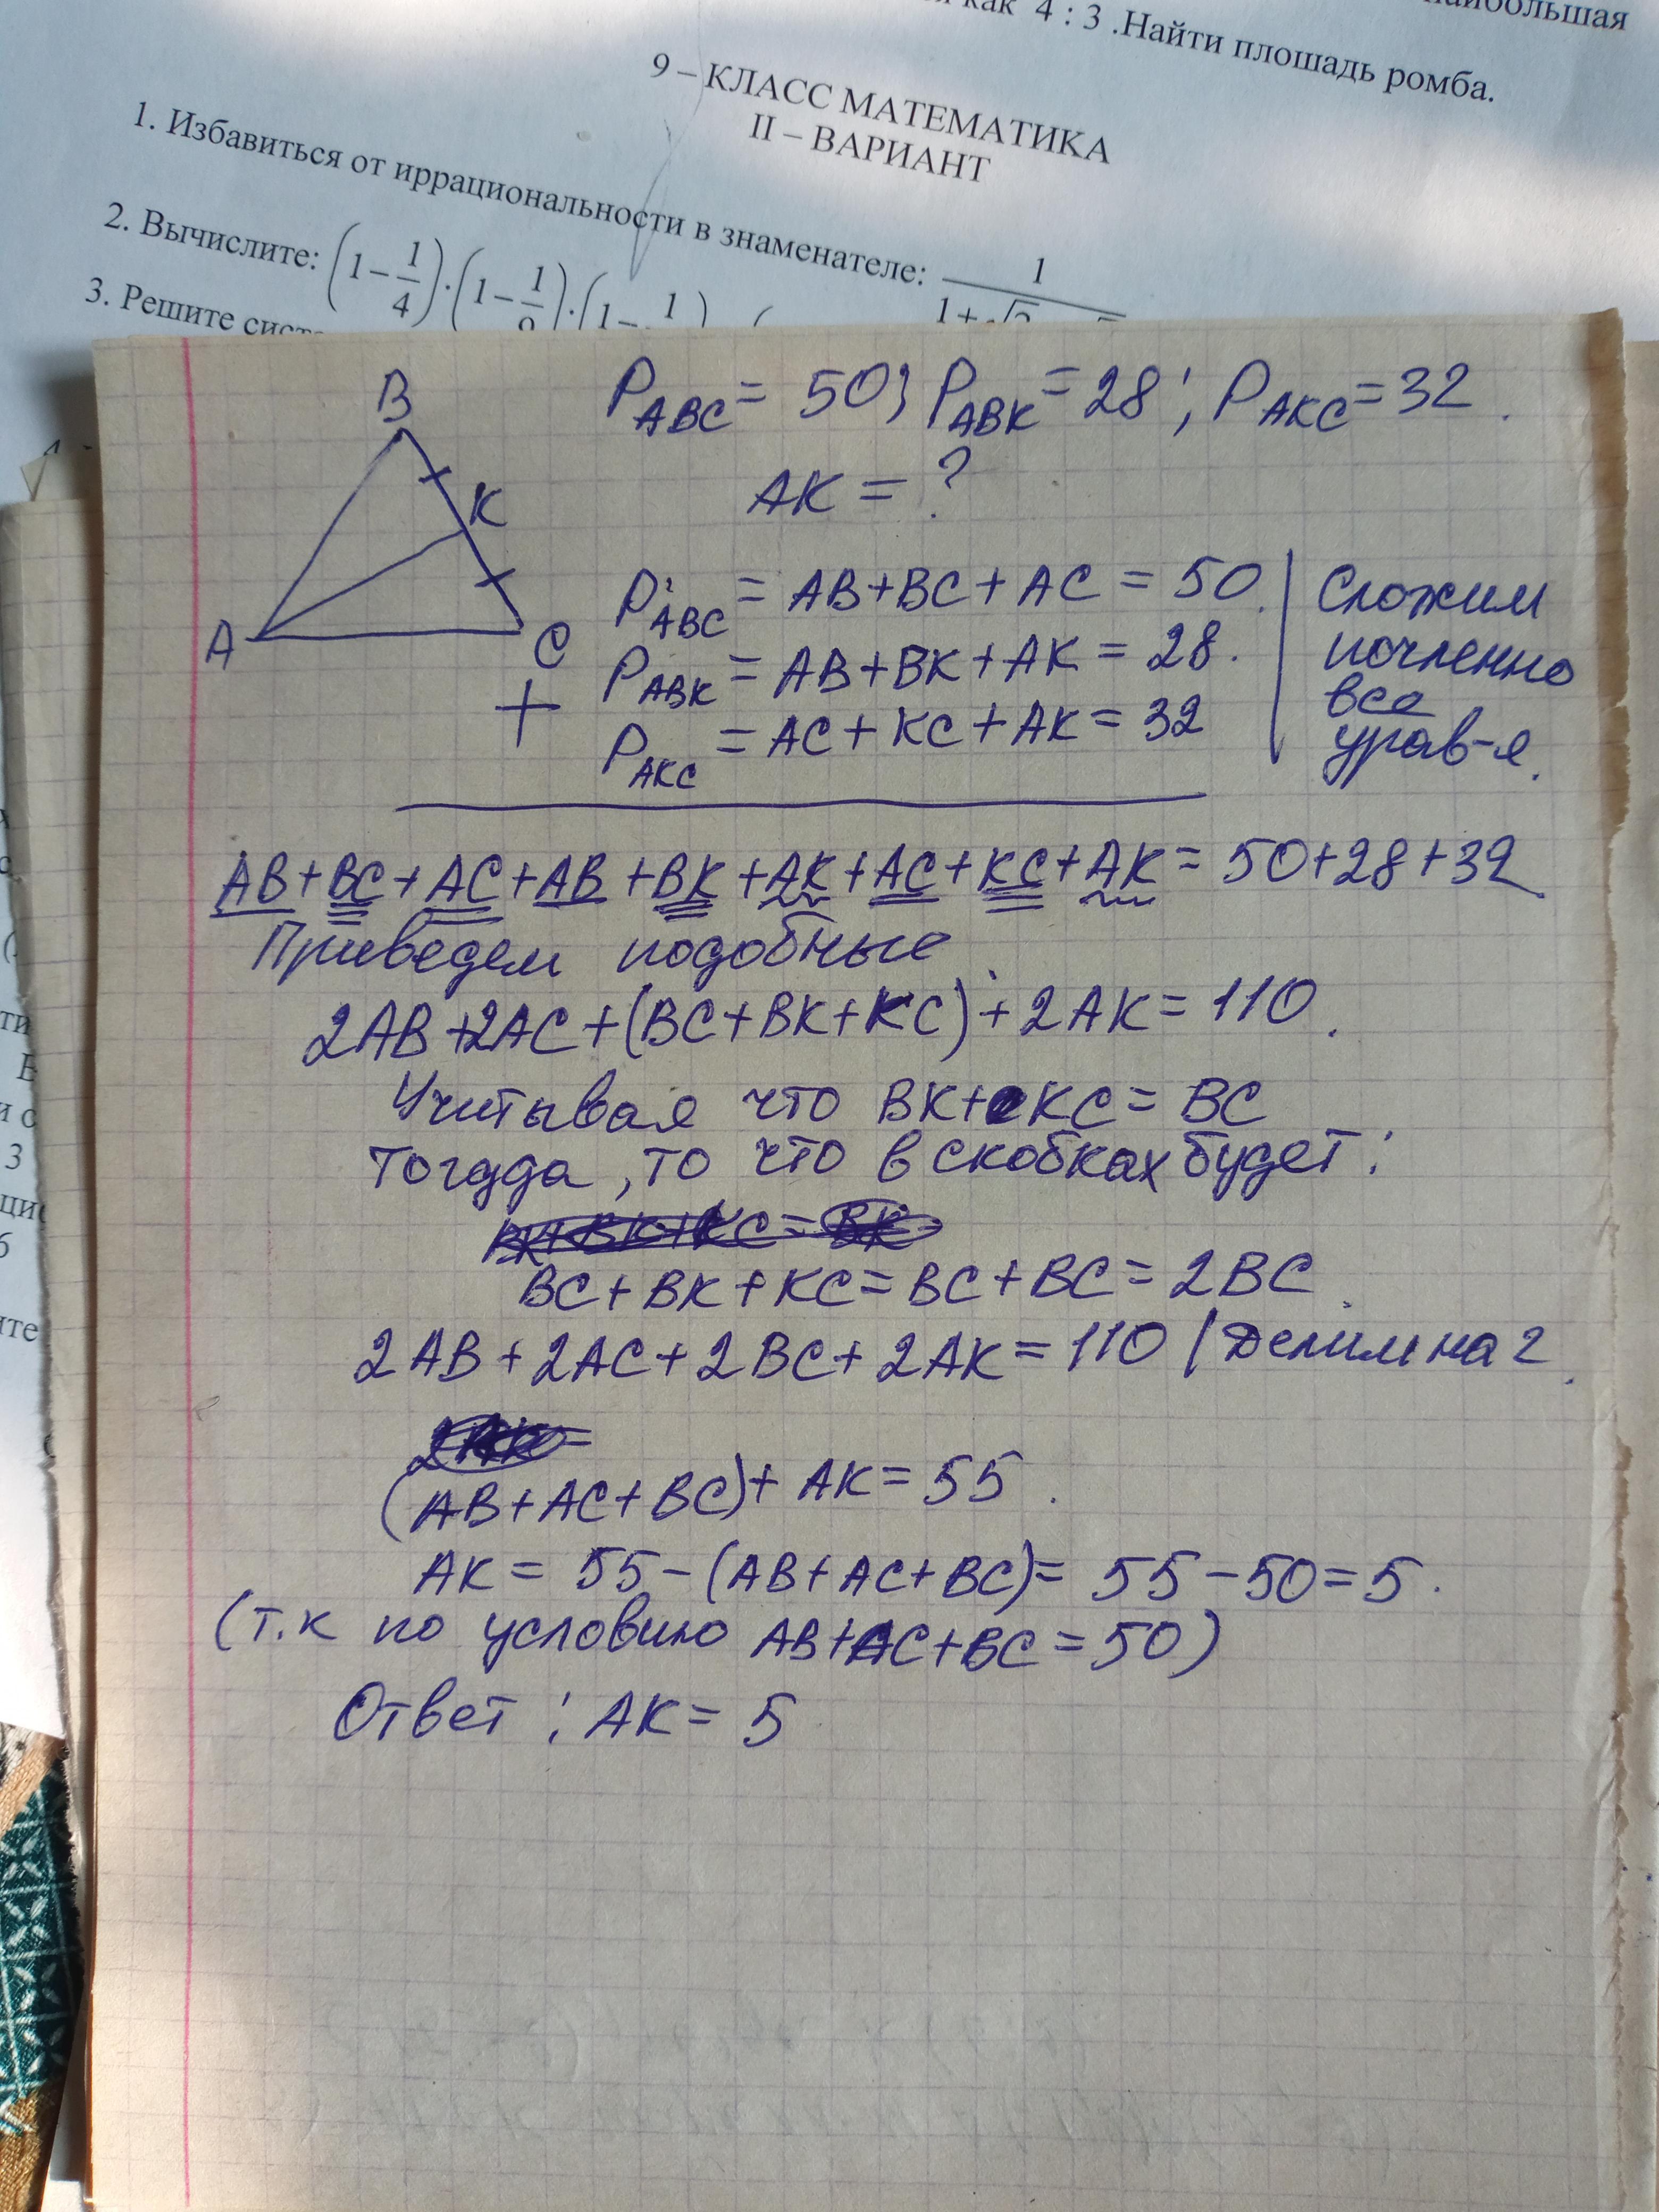 как 4 : 3 .Найти площадь ромба.
9 – КЛАСС МАТЕМАТИКА
II – ВАРИАНТ
1. Избавиться от иррациональности в знаменателе: 1
2. Вычислите: (1 – 1/4) · (1 – 1/9) · (1 –
3. Решите сист
B
K
A
C
P ABC = 50; P ABK = 28; P AKC = 32.
AK = ?
P ABC = AB + BC + AC = 50. | Сложим
P ABK = AB + BK + AK = 28. | почленно
+ | все
P AKC = AC + KC + AK = 32 | урав-я.
AB + BC + AC + AB + BK + AK + AC + KC + AK = 50 + 28 + 32
Приведем подобные
2AB + 2AC + (BC + BK + KC) + 2AK = 110.
Учитывая что BK + KC = BC
Тогдда, то что в скобках будет:
BC + BK + KC = BC + BC = 2BC.
2AB + 2AC + 2BC + 2AK = 110 / Делим на 2.
(AB + AC + BC) + AK = 55.
AK = 55 – (AB + AC + BC) = 55 – 50 = 5.
(т.к по условию AB + AC + BC = 50)
Ответ: AK = 5